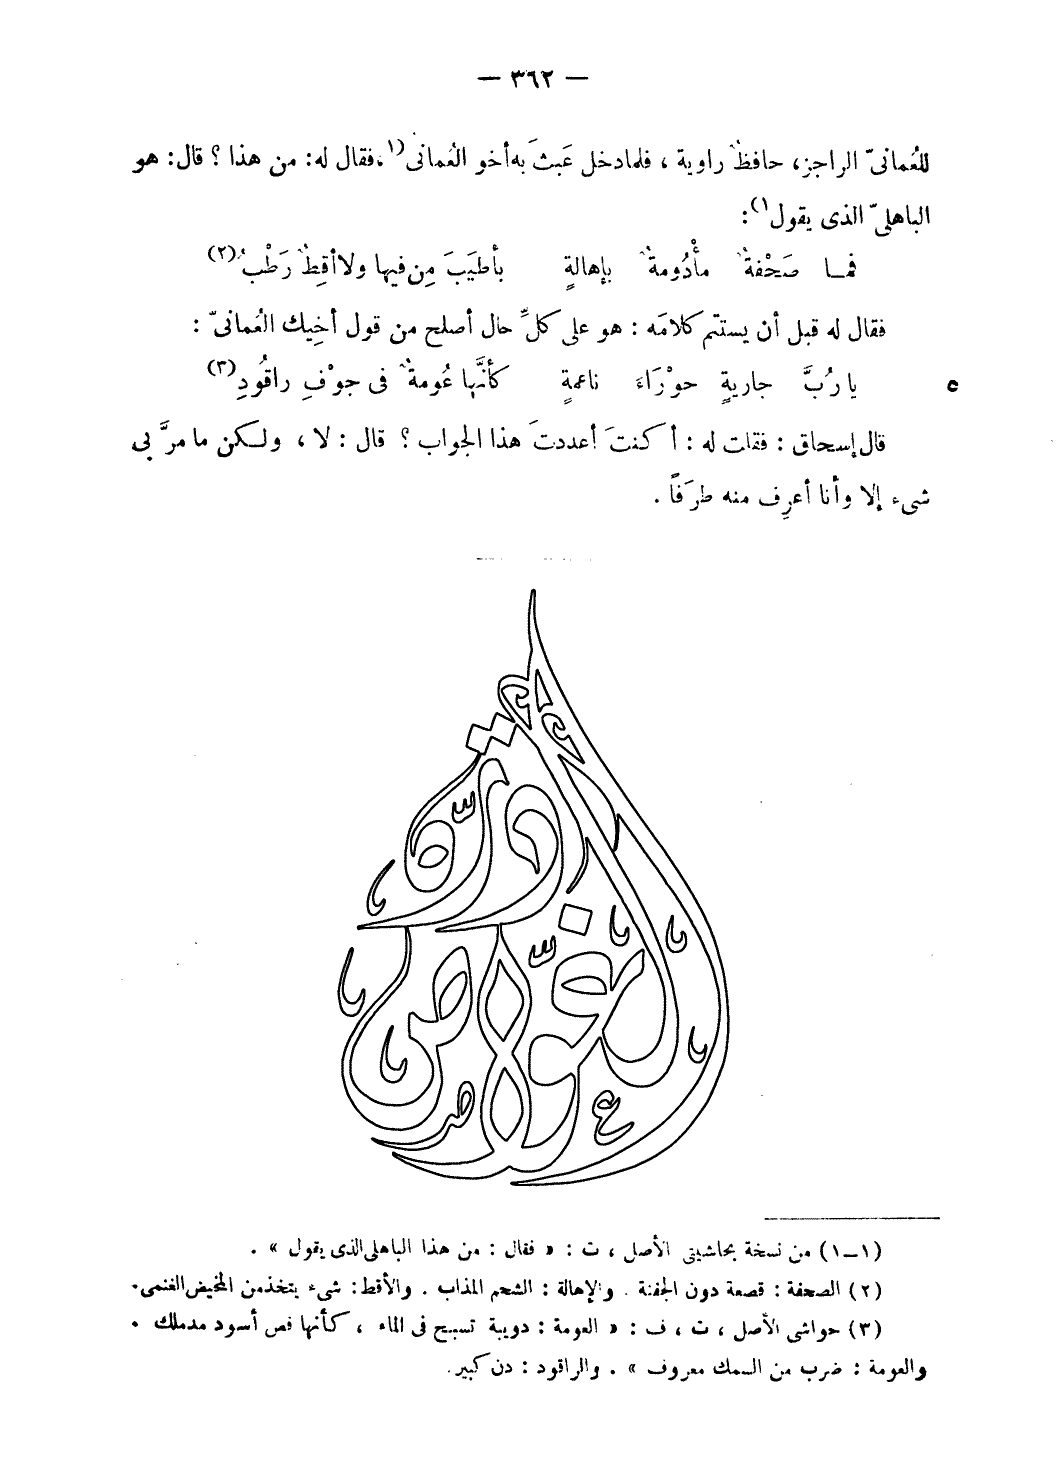 — ٣٦٢ —
للعُمانىّ الراجز، حافظٌ راوية ، فلما دخل عَبِثَ به أخو العُمانى(١، فقال له: من هذا ؟ قال: هو
الباهلىّ الذى يقول١):
فمــا صَحْفةٌ مأْدُومةٌ بإهالةٍ بأطيَبَ مِن فيها ولا أقِطٌ رَطْبُ(٢)
فقال له قبل أن يستتم كلامَه : هو على كلِّ حال أصلح من قول أخِيك العُمانىّ :
يا رُبَّ جاريةٍ حوْرَاءَ ناعمةٍ كأنَّها عُومةٌ فى جوْفِ راقُودِ(٣)
٥
قال إسحاق : فقلت له : أكنتَ أعددتَ هذا الجواب ؟ قال : لا ، ولـكن ما مرَّ بى
شىء إلا وأنا أعرِف منه طرَفاً .
درة
الغوّاص
(١–١) من نسخة بحاشيتى الأصل ، ت : « فقال : من هذا الباهلى الذى يقول » .
(٢) الصحفة : قصعة دون الجفنة . والإهالة : الشحم المذاب . والأقط: شىء يتخذ من المخيض الغنمى.
(٣) حواشى الأصل ، ت ، ف : « العومة : دويبة تسبح فى الماء ، كأنها فص أسود مدملك .
والعومة : ضرب من السمك معروف » . والراقود : دن كبير.